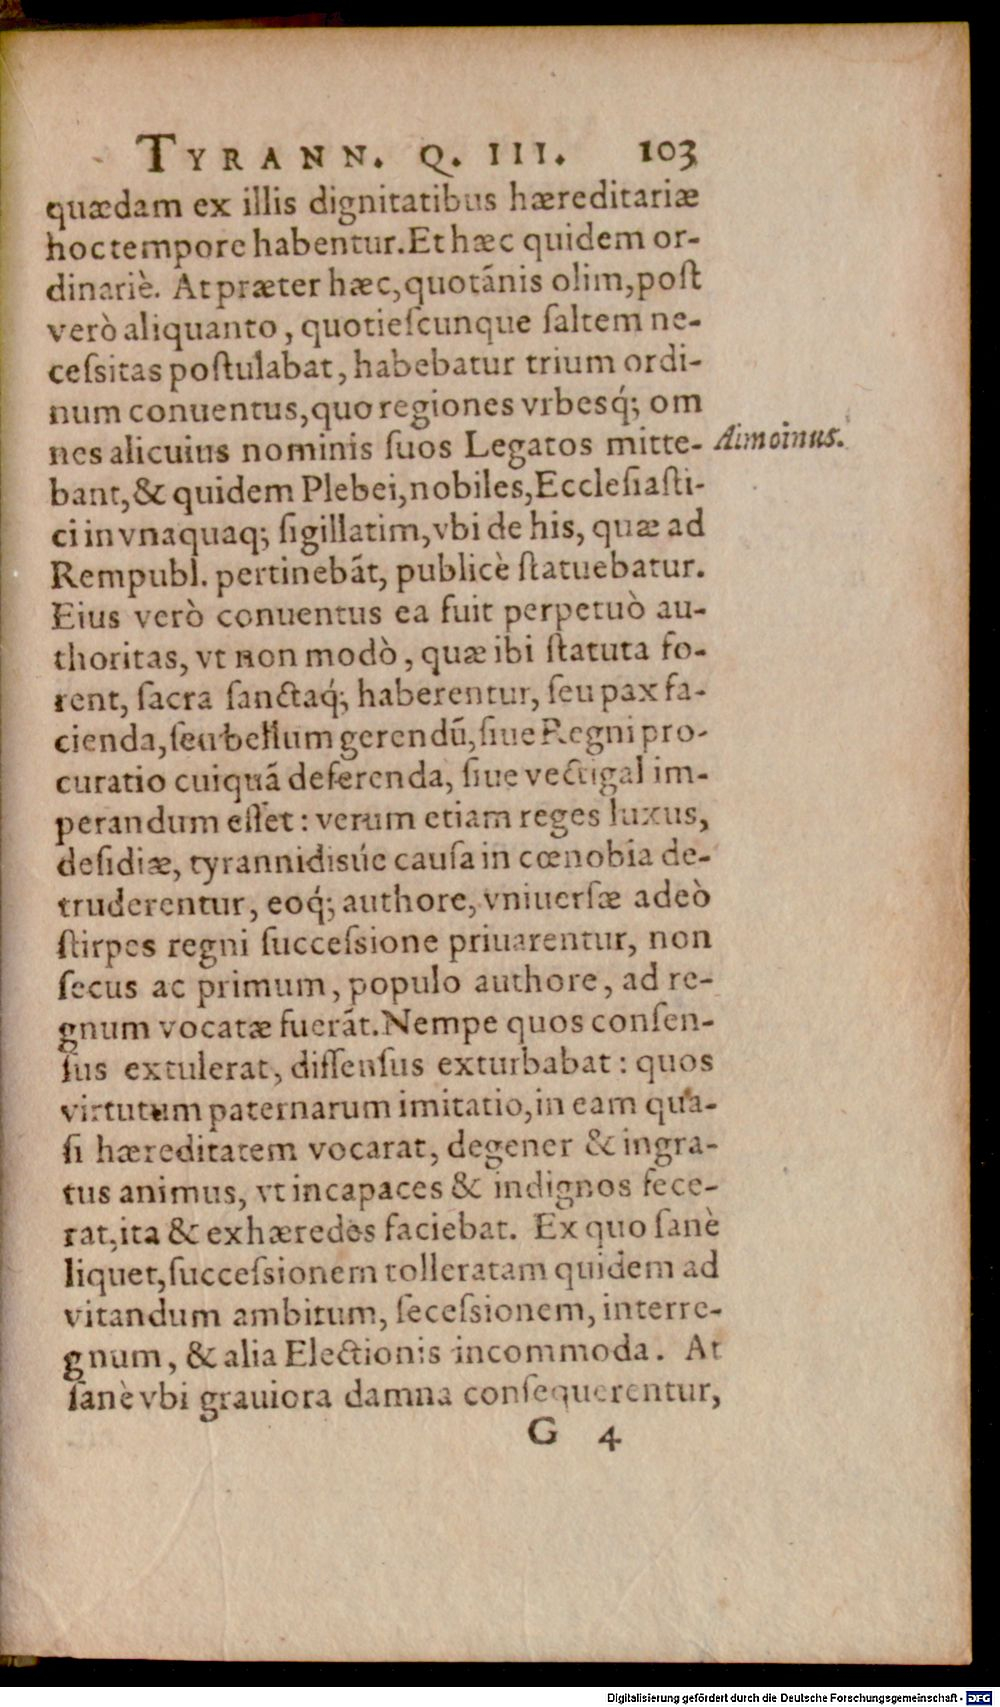 TYRANN. Q. III. 103
quædam ex illis dignitatibus hæreditariæ
hoc tempore habentur. Et hæc quidem or-
dinariè. At præter hæc, quotãnis olim, poſt
verò aliquanto, quotieſcunque ſaltem ne-
ceſsitas poſtulabat, habebatur trium ordi-
num conuentus, quo regiones vrbesq́; om
nes alicuius nominis ſuos Legatos mitte-
Aimoinus.
bant, & quidem Plebei, nobiles, Eccleſiaſti-
ci in vnaquaq; ſigillatim, vbi de his, quæ ad
Rempubl. pertinebãt, publicè ſtatuebatur.
Eius verò conuentus ea fuit perpetuò au-
thoritas, vt non modò, quæ ibi ſtatuta fo-
rent, ſacra ſanctaq́; haberentur, ſeu pax fa-
cienda, ſeu bellum gerendũ, ſiue Regni pro-
curatio cuiquã deferenda, ſiue vectigal im-
perandum eſſet: verum etiam reges luxus,
deſidiæ, tyrannidisúe cauſa in cœnobia de-
truderentur, eoq́; authore, vniuerſæ adeò
ſtirpes regni ſucceſsione priuarentur, non
ſecus ac primum, populo authore, ad re-
gnum vocatæ fuerãt. Nempe quos conſen-
ſus extulerat, diſſenſus exturbabat: quos
virtutum paternarum imitatio, in eam qua-
ſi hæreditatem vocarat, degener & ingra-
tus animus, vt incapaces & indignos fece-
rat, ita & exhæredes faciebat. Ex quo ſanè
liquet, ſucceſsionem tolleratam quidem ad
vitandum ambitum, ſeceſsionem, interre-
gnum, & alia Electionis incommoda. At
ſanè vbi grauiora damna conſequerentur,
G 4
Digitalisierung gefördert durch die Deutsche Forschungsgemeinschaft - DFG